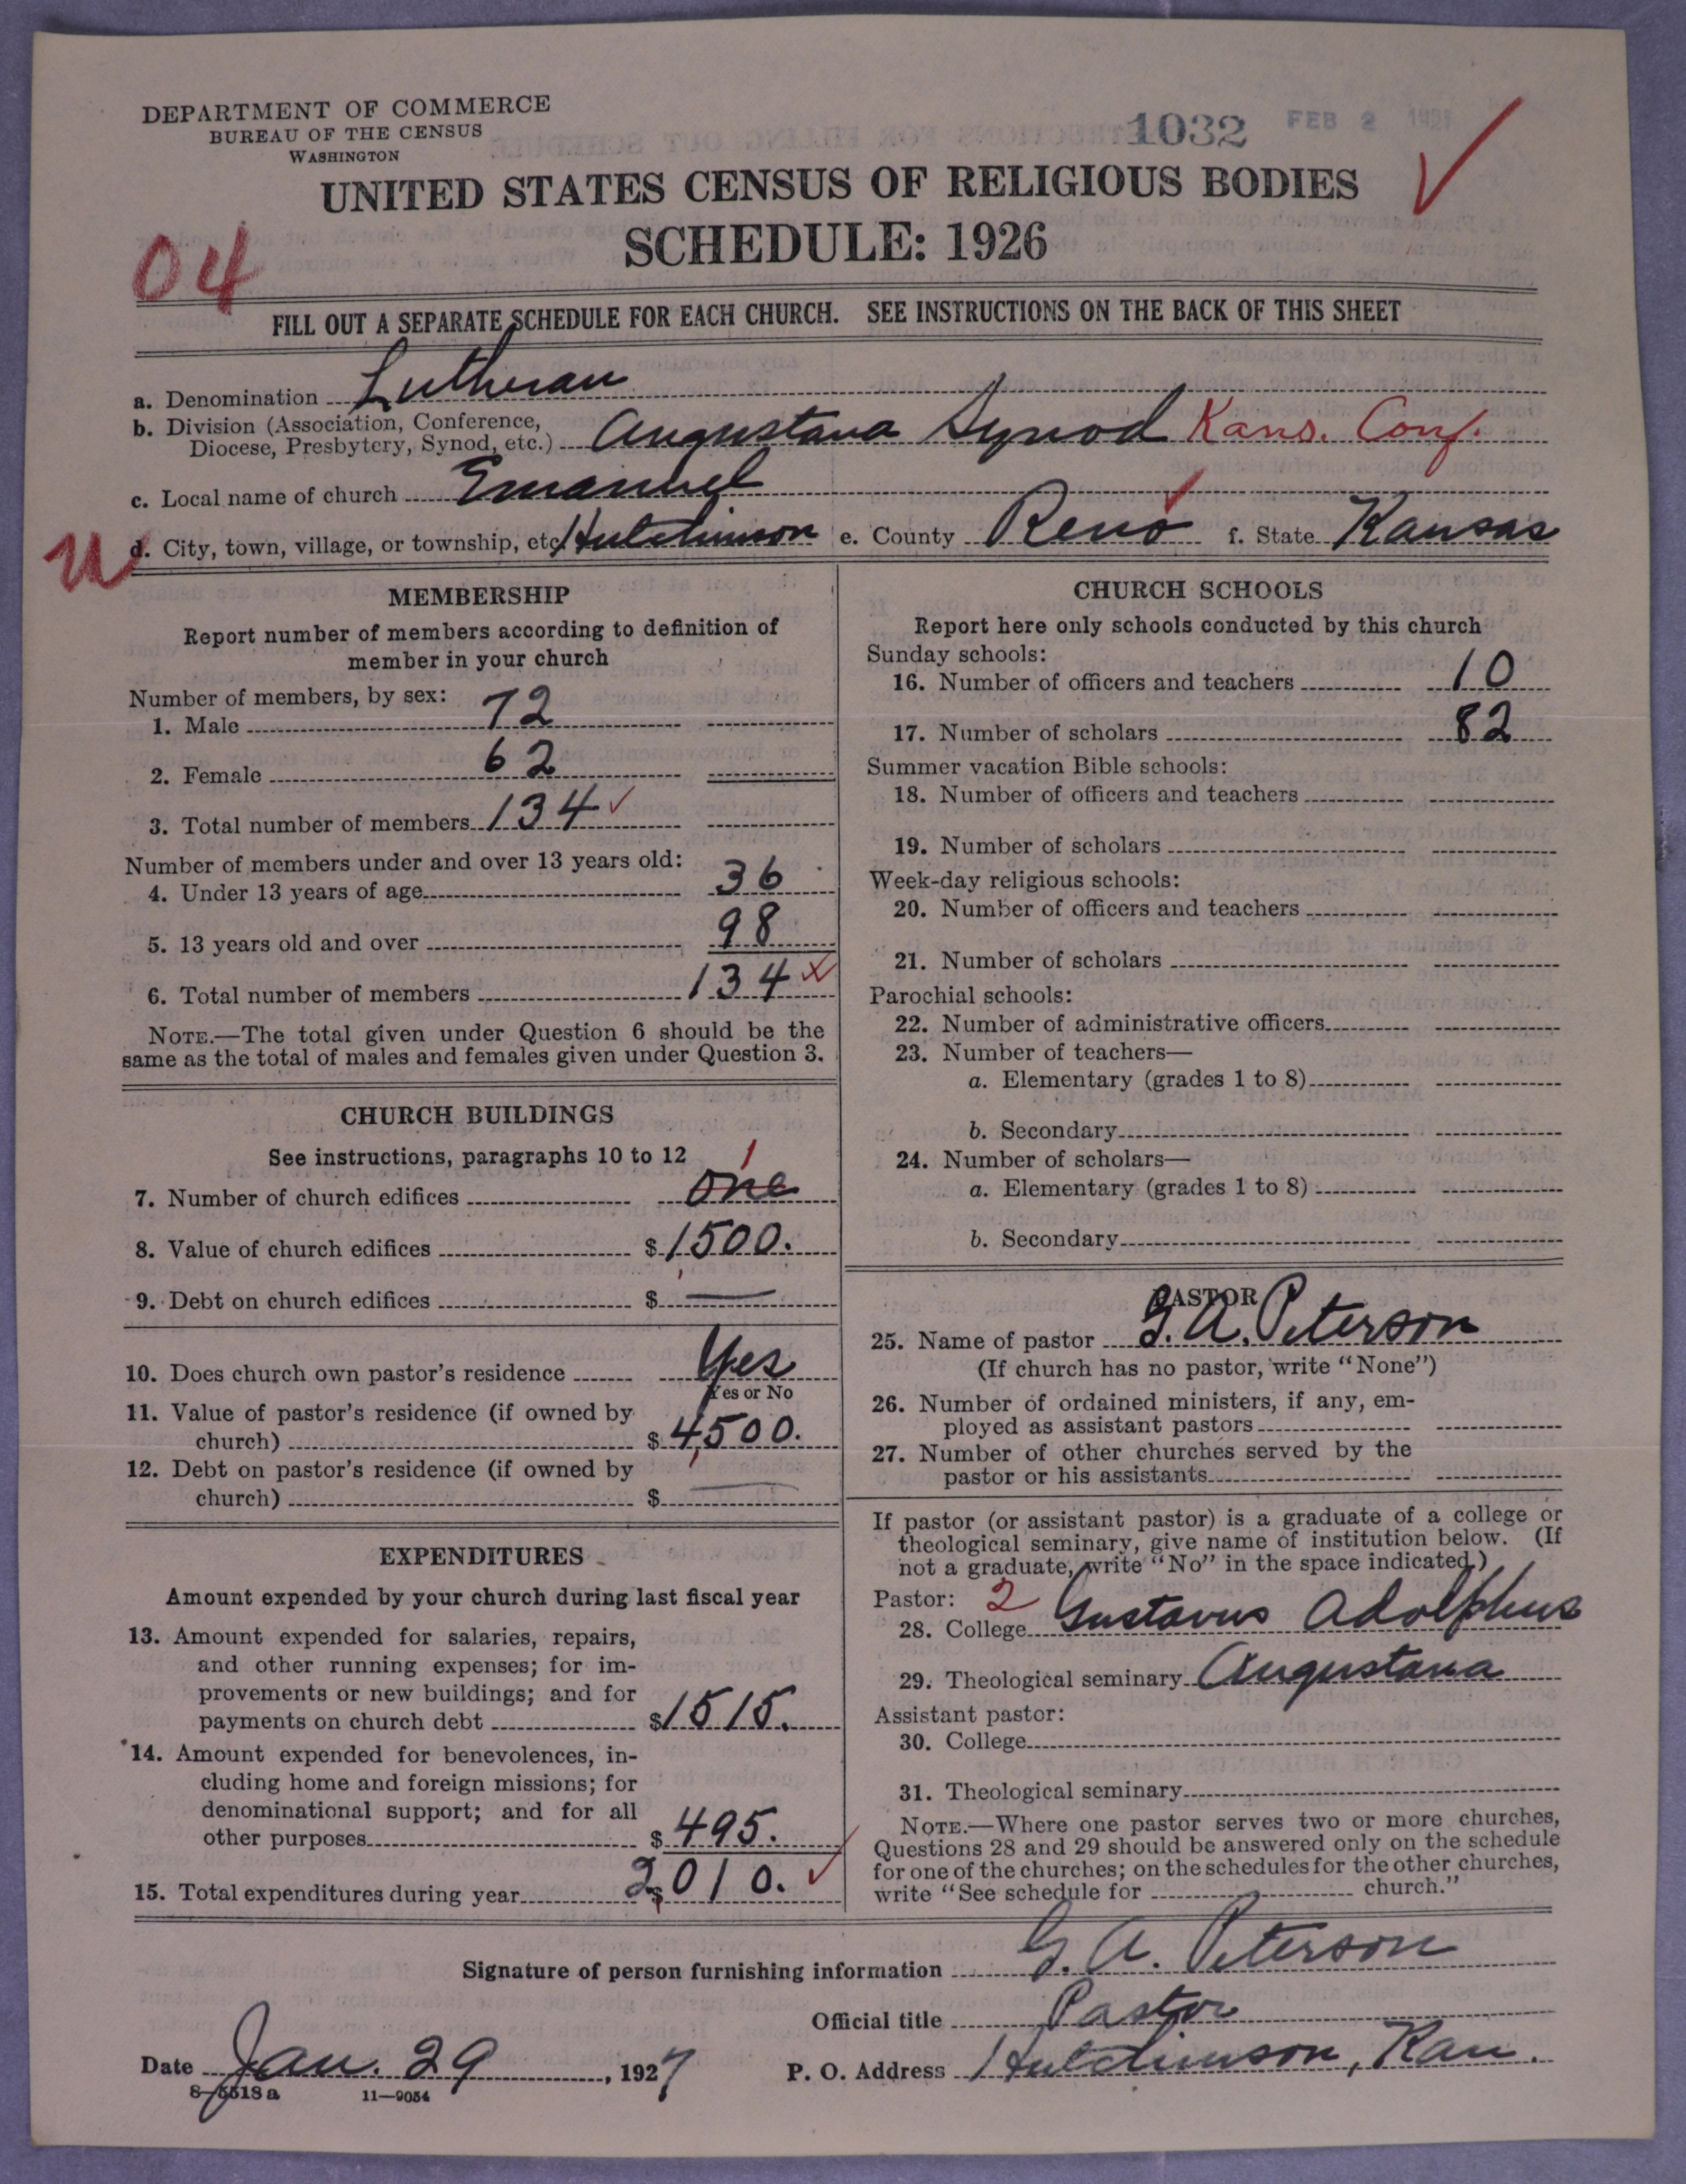 DEPARTMENT OF COMMERCE
BUREAU OF THE CENSUS
WASHINGTON
1032 FEB 2
UNITED STATES CENSUS OF RELIGIOUS BODIES
SCHEDULE: 1926
04
FILL OUT A SEPARATE SCHEDULE FOR EACH CHURCH. SEE INSTRUCTIONS ON THE BACK OF THIS SHEET
a. Denomination Lutheran
b. Division (Association, Conference,
Diocese, Presbytery, Synod, etc.) Augustana Synod Kans. Conf.
c. Local name of church Emanuel
U d. City, town, village, or township, etc. Hutchinson e. County Reno f. State Kansas
MEMBERSHIP
Report number of members according to definition of
member in your church
Number of members, by sex:
1. Male 72
2. Female 62
3. Total number of members 134
Number of members under and over 13 years old:
4. Under 13 years of age 36
5. 13 years old and over 98
6. Total number of members 134
NOTE.—The total given under Question 6 should be the
same as the total of males and females given under Question 3.
CHURCH BUILDINGS
See instructions, paragraphs 10 to 12
1
7. Number of church edifices One
8. Value of church edifices $ 1500.
9. Debt on church edifices $ —
10. Does church own pastor's residence Yes
Yes or No
11. Value of pastor's residence (if owned by
church) $ 4,500.
12. Debt on pastor's residence (if owned by
church) $ —
EXPENDITURES
Amount expended by your church during last fiscal year
13. Amount expended for salaries, repairs,
and other running expenses; for im-
provements or new buildings; and for
payments on church debt $ 1515.
14. Amount expended for benevolences, in-
cluding home and foreign missions; for
denominational support; and for all
other purposes $ 495.
15. Total expenditures during year $ 2010.
CHURCH SCHOOLS
Report here only schools conducted by this church
Sunday schools:
16. Number of officers and teachers 10
17. Number of scholars 82
Summer vacation Bible schools:
18. Number of officers and teachers
19. Number of scholars
Week-day religious schools:
20. Number of officers and teachers
21. Number of scholars
Parochial schools:
22. Number of administrative officers
23. Number of teachers—
a. Elementary (grades 1 to 8)
b. Secondary
24. Number of scholars—
a. Elementary (grades 1 to 8)
b. Secondary
PASTOR
25. Name of pastor G. A. Peterson
(If church has no pastor, write "None")
26. Number of ordained ministers, if any, em-
ployed as assistant pastors
27. Number of other churches served by the
pastor or his assistants
If pastor (or assistant pastor) is a graduate of a college or
theological seminary, give name of institution below. (If
not a graduate, write "No" in the space indicated.)
Pastor: 2
28. College Gustavus Adolphus
29. Theological seminary Augustana
Assistant pastor:
30. College
31. Theological seminary
NOTE.—Where one pastor serves two or more churches,
Questions 28 and 29 should be answered only on the schedule
for one of the churches; on the schedules for the other churches,
write "See schedule for church."
Signature of person furnishing information G. A. Peterson
Official title Pastor
Date Jan. 29, 1927 P. O. Address Hutchinson, Kan.
8—5518a 11—9054